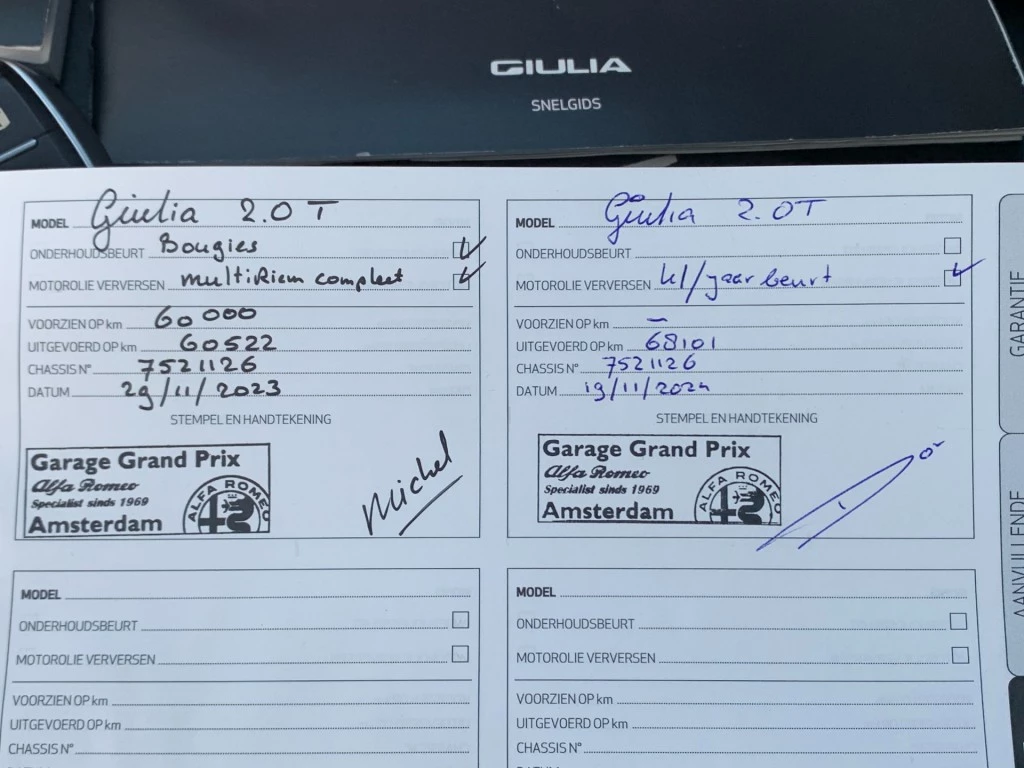 GIULIA
SNELGIDS
MODEL Giulia 2.0 T
ONDERHOUDSBEURT Bougies
MOTOROLIE VERVERSEN multiRiem compleet
VOORZIEN OP km 60 000
UITGEVOERD OP km 60522
CHASSIS N° 7521126
DATUM 29/11/2023
STEMPEL EN HANDTEKENING
Garage Grand Prix
Alfa Romeo
Specialist sinds 1969
Amsterdam
ALFA ROMEO
Michel
MODEL Giulia 2.0T
ONDERHOUDSBEURT
MOTOROLIE VERVERSEN kl/jaar beurt
VOORZIEN OP km —
UITGEVOERD OP km 68101
CHASSIS N° 7521126
DATUM 19/11/2024
STEMPEL EN HANDTEKENING
Garage Grand Prix
Alfa Romeo
Specialist sinds 1969
Amsterdam
ALFA ROMEO
MODEL
ONDERHOUDSBEURT
MOTOROLIE VERVERSEN
VOORZIEN OP km
UITGEVOERD OP km
CHASSIS N°
MODEL
ONDERHOUDSBEURT
MOTOROLIE VERVERSEN
VOORZIEN OP km
UITGEVOERD OP km
CHASSIS N°
GARANTIE
AANVULLENDE